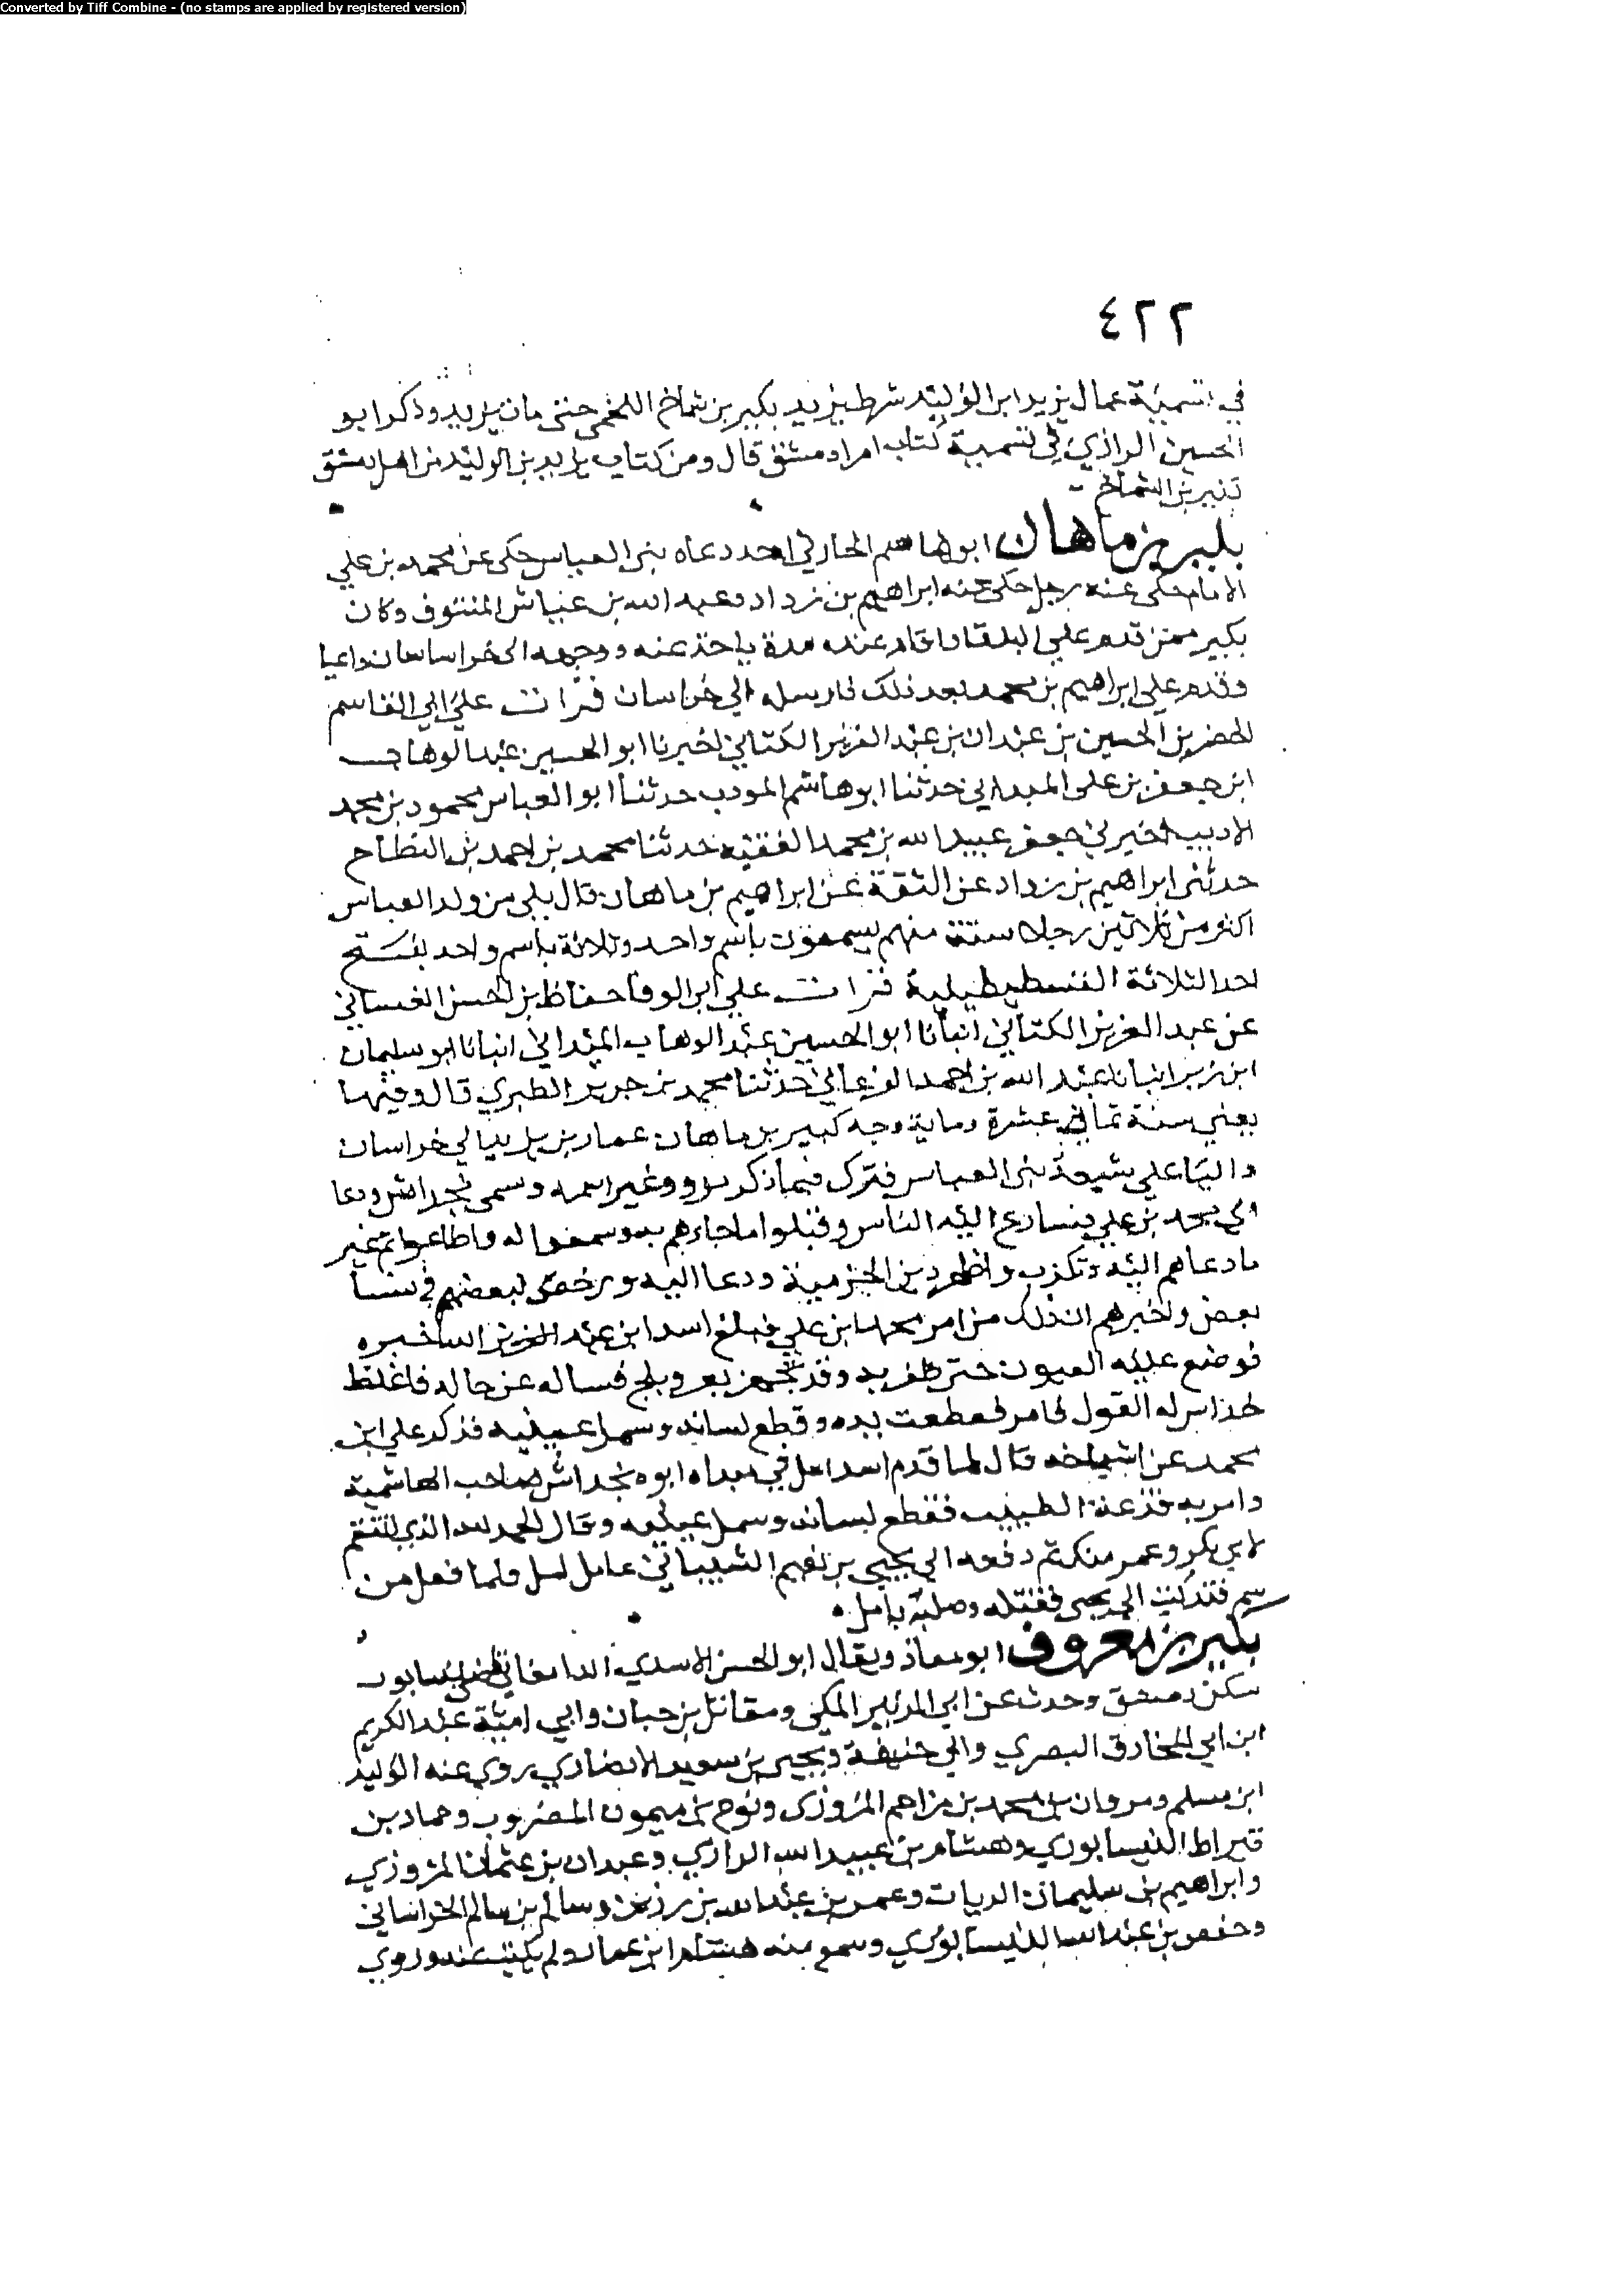 Converted by Tiff Combine - (no stamps are applied by registered version)
٤٢٢
في تسمية عمال يزيد ابن الوليد شرط يزيد بكير بن شماخ اللخمي حتى مات يزيد وذكر ابو
الحسين الرازي في تسمية كتاب امراء دمشق قال ومن كتاب يزيد بن الوليد من اهل دمشق
بكير بن الشماخ
بكير بن ماهان ابو هاشم الحارثي احد دعاه بني العباس حكى عن محمد بن علي
الامام حكى عنه رجل حكى عنه ابراهيم بن زداد وعبد الله بن عياش المنتوف وكان
بكير ممن قدم علي البلقا واقام عنده مدة ياخذ عنه ووجهه الى خراسان داعيا
وقدم علي ابراهيم بن محمد بعد ذلك فارسله الي خراسان قرات علي ابي القاسم
الخضر بن الحسين بن عبدان بن عبد العزيز الكتاني اخبرنا ابو الحسين عبد الوهاب
ابن جعفر بن علي الميداني حدثنا ابو هاشم المودب حدثنا ابو العباس محمود بن محمد
الاديب اخبرني جعفر عبيد الله بن محمد الفقيه حدثنا محمد بن احمد بن النطاح
حدثني ابراهيم بن زداد عن الثقة عن ابراهيم بن ماهان قال يلي من ولد العباس
اكثر من ثلاثين رجلا ستة منهم يسمون باسم واحد وثلاثة باسم واحد يفتح
احد الثلاثة القسطنطيلية قرات علي ابي الوفا حفاظ بن الحسن الغساني
عن عبد العزيز الكتاني انبأنا ابو الحسين عبد الوهاب الميداني انبانا ابو سليمان
ابن زبر انبانا عبد الله بن احمد الفرعاني حدثنا محمد بن جرير الطبري قال وفيها
يعني سنة ثماني عشرة وماية وجه كبير بن ماهان عمار بن يزيد الي خراسان
واليا علي شيعة بني العباس فنزل فيما ذكر مرو وغير اسمه وسمي بخداش ودعا
الى محمد بن علي فتسارع اليه الناس وقبلوا ما جاءهم به وسمعوا له واطاعوا ثم غير
ما دعاهم اليه وتكذب واظهر دين الخرمية ودعا اليه ورخص لبعضهم في نسا
بعض واخبرهم ان ذلك من امر محمد ابن علي فبلغ اسد ابن عبد الله خبره
فوضع عليه العيون حتى ظفر به وقد تجهز لغزو بلخ فساله عن حاله فاغلظ
خداش له القول فامر فقطعت يده وقطع لسانه وسمل عينيه فذكر علي ابن
محمد عن اشياخه قال لما قدم اسد امل في مبداه اتوه بخداش صاحب الهاشمية
وامر به قرعة الطبيب فقطع لسانه وسمل عينيه وقال الحمد لله الذي انتقم
لابي بكر وعمر منك ثم دفعه الي يحيى بن نعيم الشيباني عامل امل فلما قفل من
سمرقند كتب الي يحيى فقتله وصلبه بامل
بكير بن معروف ابو معاذ ويقال ابو الحسن الاسدي الدامغاني قاضي نيسابور
سكن دمشق وحدث عن ابي الزبير المكي ومقاتل بن حيان وابي امية عبد الكريم
ابن ابي المخارق البصري وابي حنيفة ويحيى بن سعيد الانصاري روي عنه الوليد
ابن مسلم ومروان بن محمد بن مزاحم المروزي ونوح بن ميمون المضروب وحماد بن
قيراط النيسابوري وهشام بن عبيد الله الرازي وعبدان بن عثمان المروزي
وابراهيم بن سليمان الزيات وعمر بن عبد الله بن رزين وسالم بن سالم الخراساني
وحفص بن عبد الله النيسابوري وسمع منه هشام ابن عمار ولم يكتب عنه وروي